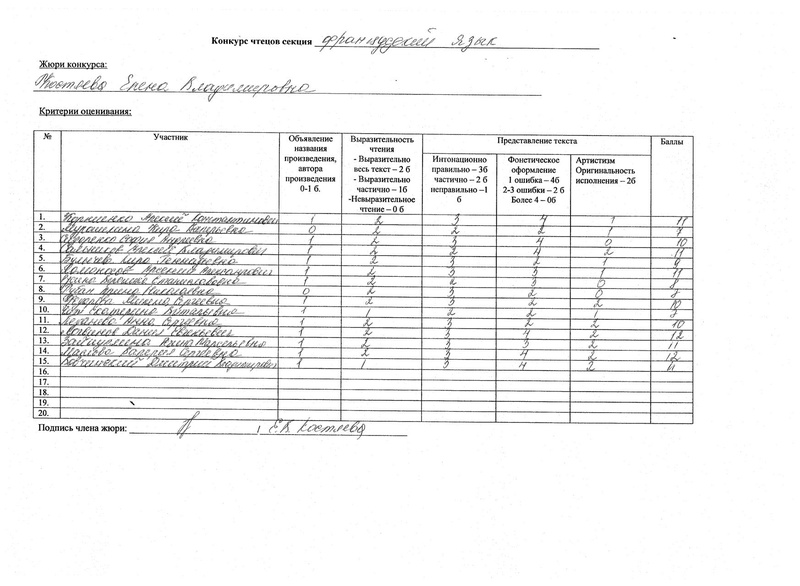 Конкурс чтецов секция французский язык
Жюри конкурса:
Костяева Елена Владимировна
Критерии оценивания:
№ Участник Объявление названия произведения, автора произведения 0-1 б. Выразительность чтения - Выразительно весь текст – 2 б - Выразительно частично – 1б -Невыразительное чтение – 0 б Представление текста Баллы
Интонационно правильно – 3б частично – 2 б неправильно –1 б Фонетическое оформление 1 ошибка – 4б 2-3 ошибки – 2 б Более 4 – 0б Артистизм Оригинальность исполнения – 2б
1. Корниенко Алексей Константинович 1 2 3 4 1 11
2. Васильевна 0 2 2 2 1 7
3. София Андреевна 1 2 3 4 0 10
4. Сальников Алексей Владимирович 1 2 2 4 2 11
5. Булычев Геннадьевна 1 2 3 2 1 9
6. Арсений Александрович 1 2 3 1 11
7. Станиславовна 1 2 0 8
8. Арина Николаевна 0 2 3 2 0
9. Милена Сергеевна 1 2 3 2 2 10
10. Екатерина Витальевна 1 1 2 2 1
11. Анна Сергеевна 1 2 3 2 2 10
12. Логвинов Даниил 1 2 3 4 2 12
13. Арина 1 2 3 3 2 11
14. Валерия Сергеевна 1 2 3 4 2 12
15. Дмитрий Владимирович 1 1 3 4 2 11
16.
17.
18.
19.
20.
Подпись члена жюри: / Е.В. Костяева